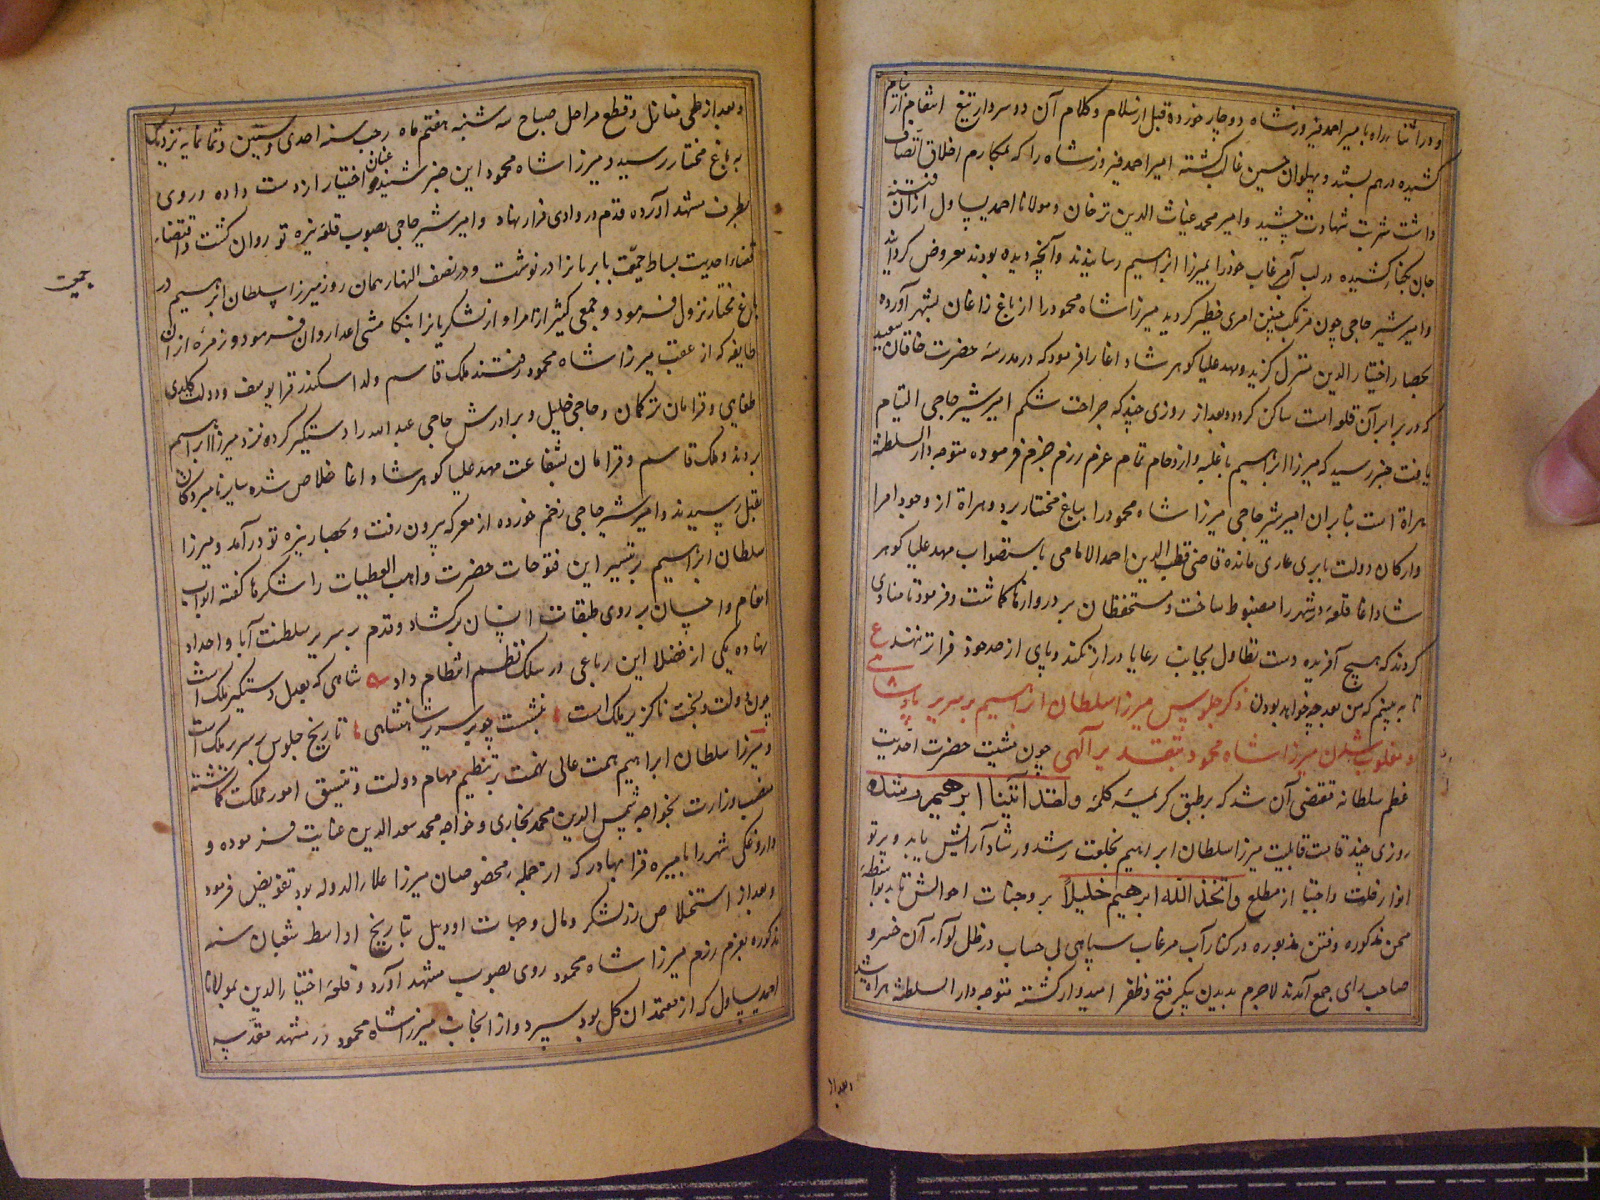 و در اثنا راه با میر احمد فیروزشاه دوچار خورده قبل از سلام و کلام آن دو سردار تیغ انتقام از نیام
کشیده درهم شدند و پهلوان حسین غاک کشته امیر احمد فیروز شاه را که بمکارم اخلاق اتصاف
داشت شربت شهادت چشید و امیر محمد غیاث الدین ترخان و مولانا احمد یساول از آن فتنه
جان بکنار کشیده در لب آب مرغاب خود را بمیرزا ابراهیم رسانیدند و آنچه دیده بودند معروض کردانیدند
و امیر شیر حاجی چون مرتکب چنین امری خطیر کردید میرزا شاه محمود را از باغ زاغان بشهر آورده
بحصار اختیار الدین منزل کزید و مهد علیا کوهر شاد اغا را فرمود که در مدرسه حضرت خاقان سعید
که در برابر آن قلعه است ساکن کردد و بعد از روزی چند که جراحت شکم امیر شیر حاجی التیام
یافت خبر رسید که میرزا ابراهیم با غلبه و ازدحام تمام عزم رزم جزم فرموده متوجه دار السلطنة
هراة است بنابران امیر شیر حاجی میرزا شاه محمود را بباغ مختار برد و هراة از وجود امرا
و ارکان دولت بابری عاری مانده قاضی قطب الدین احمد الامامی باستصواب مهد علیا کوهر
شاد اغا قلعه و شهر را مضبوط ساخت و مستحفظان بر دروازها کماشت و فرمود تا منادی
کردند که هیچ آفریده دست تطاول بجانب رعایا دراز نکند و پای از حد خود فراتر ننهد ع
تا به بینم که من بعد چه خواهد بودن ذکر جلوس میرزا سلطان ابراهیم بر سریر پادشاهی
و مغلوب شدن میرزا شاه محمود بتقدیر آلهی چون مشیت حضرت احدیت
عظم سلطانه مقتضی آن شد که بر طبق کریمه کلمه ولقد اتینا ابرهیم رشده
روزی چند قامت قابلیت میرزا سلطان ابراهیم بخلعت رشد و رشاد آرایش یابد و پرتو
انوار خلعت و اجتبا از مطلع واتخذ الله ابرهیم خلیلاً بر وجنات احوالش تابد بواسطه
محن مذکوره و فتن مذبوره در کنار آب مرغاب سپاهی بی حساب در ظل لوآء آن خسرو
صاحب رای جمع آمدند لاجرم بدیدن پیکر فتح و ظفر امیدوار کشته متوجه دار السلطنة هراة شد
و بعد از
و بعد از طی منازل و قطع مراحل صباح سه شنبه هفتم ماه رجب سنه احدی و ستین و ثمانمایه نزدیک
به باغ مختار رسید و میرزا شاه محمود این خبر شنیده عنان اختیار از دست داده و روی
بطرف مشهد آورده قدم در وادی فرار نهاد و امیر شیر حاجی بصوب قلعه نیره تو روان کشت و اقتضاء
قضاء احدیت بساط جمعیت بابریانرا در نوشت و در نصف النهار همان روز میرزا سلطان ابراهیم در
جمعیت
باغ مختار نزول فرمود و جمعی کثیر از امرا و از لشکریانرا بتکامشی اعدا روان فرمود و زمرۀ از آن
طایفه که از عقب میرزا شاه محمود رفتند ملک قاسم ولد اسکندر قرا یوسف و دولت کلدی
طغایی و قرامان ترکمان و حاجی خلیل و برادرش حاجی عبد الله را دستکیر کرده نزد میرزا ابراهیم
بردند و ملک قاسم و قرامان بشفاعت مهد علیا کوهر شاد اغا خلاص شده سایر نامبردکان
بقتل رسیدند و امیر شیر حاجی زخم خورده از معرکه بیرون رفت و بحصار نیره تو در آمد و میرزا
سلطان ابراهیم بتیسیر این فتوحات حضرت واهب العطیات را شکرها کفته ابواب
انعام و احسان بر روی طبقات انسان برکشاد و قدم بر سریر سلطنت آبا و اجداد
نهاده یکی از فضلا این رباعی در سلک نظم انتظام داد شاهی که بعدل دستکیر ملک است
چون دولت و بخت ناکزیر ملک است بنشست چو بر سریر شاهنشاهی تاریخ جلوس بر سریر ملک است
و میرزا سلطان ابراهیم همت عالی نهمت بر تنظیم مهام دولت و تنسیق امور مملکت کماشته
منصب وزارت بخواجه شمس الدین محمد بخاری و خواجه محمد سعد الدین عنایت فرموده و
داروغکی شهر را بامیره قرا بهادر که از جمله مخصوصان میرزا علاء الدوله بود تفویض فرمود
و بعد از استخلاص زر لشکر و مال و جهات اودییل بتاریخ اواسط شعبان سنه
مذکوره بعزم رزم میرزا شاه محمود روی بصوب مشهد آورد و قلعه اختیار الدین بمولانا
احمد یساول که از معتمدان کل بود سپرد و از انجانب میرزا شاه محمود در مشهد مقدسه